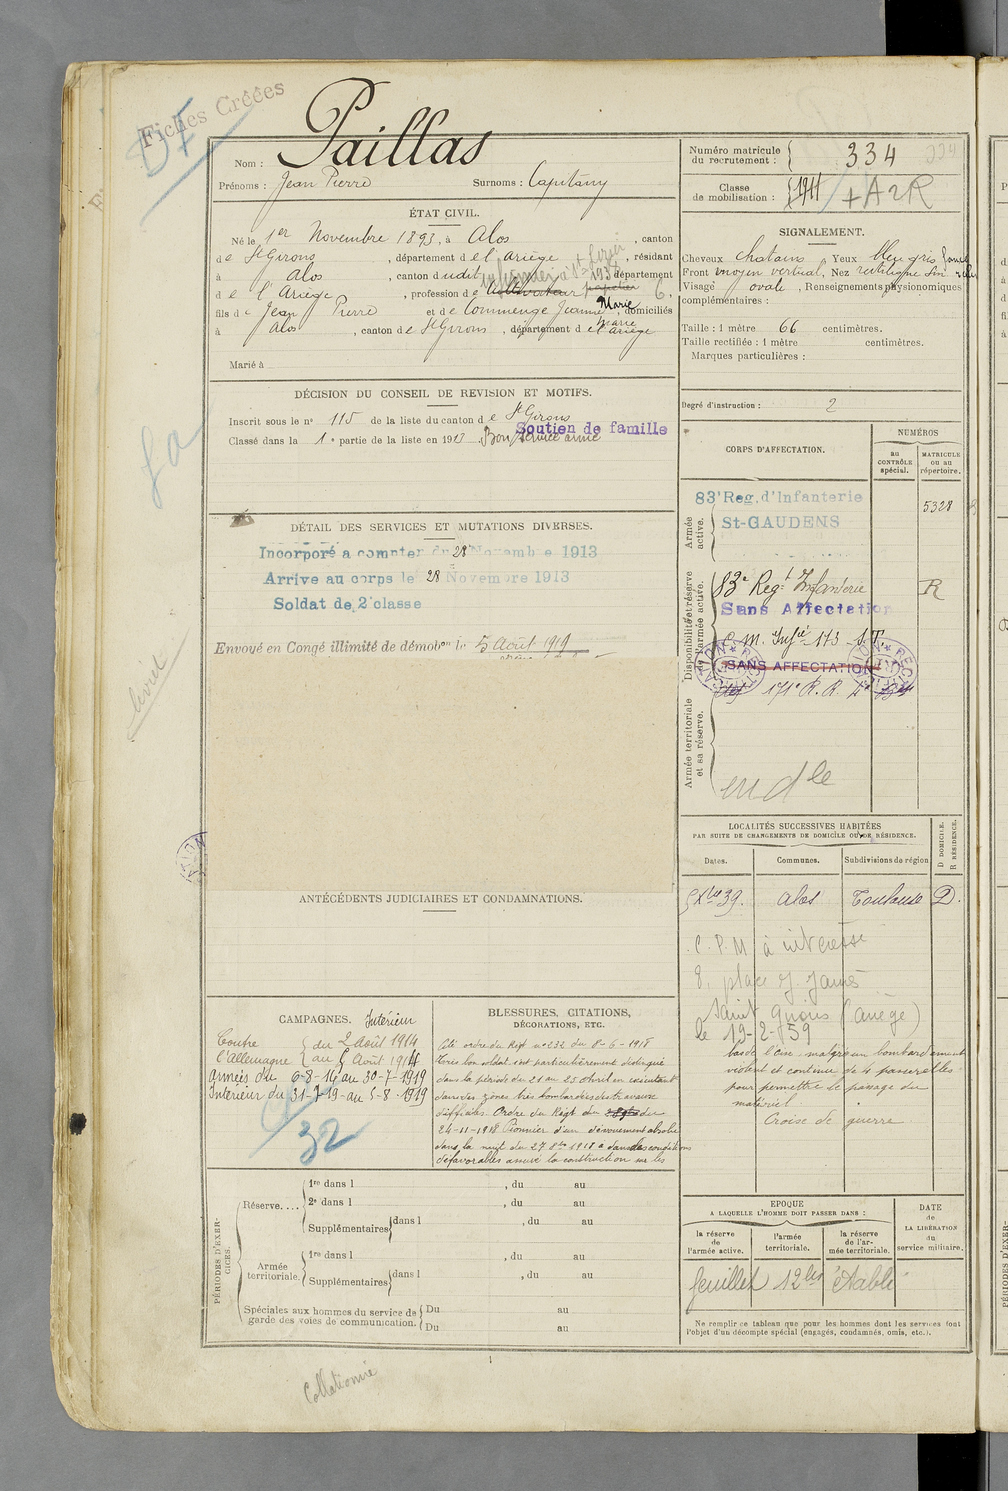 Fiches Créées
Nom : Paillas
Prénoms : Jean Pierre Surnoms : Capitany
Numéro matricule du recrutement : 334
Classe de mobilisation : 1911 + A2R
ÉTAT CIVIL.
Né le 1er Novembre 1893, à Alos, canton
de St Girons, département de l'Ariège, résidant
à Alos, canton dudit, 1932 département
de l'Ariège, profession de cultivateur papetier C.
fils de Jean Pierre et de Commenge Jeanne Marie, domiciliés
à Alos, canton de St Girons, département de l'Ariège
Marié à
SIGNALEMENT.
Cheveux chatains Yeux bleu gris
Front moyen vertical, Nez rectiligne
Visage ovale, Renseignements physionomiques
complémentaires :
Taille : 1 mètre 66 centimètres.
Taille rectifiée : 1 mètre centimètres.
Marques particulières :
Degré d'instruction : 2
DÉCISION DU CONSEIL DE REVISION ET MOTIFS.
Inscrit sous le n° 115 de la liste du canton de St Girons
Classé dans la 1e partie de la liste en 1913 Bon service armé
Soutien de famille
DÉTAIL DES SERVICES ET MUTATIONS DIVERSES.
Incorporé a compter du 28 Novembre 1913
Arrive au corps le 28 Novembre 1913
Soldat de 2e classe
Envoyé en Congé illimité de démobon le 5 Août 1919
CORPS D'AFFECTATION.
NUMÉROS
au CONTRÔLE spécial.
MATRICULE ou au répertoire.
Armée active.
83e Reg. d'Infanterie
St-GAUDENS
5328
Disponibilité et réserve de l'armée active.
83e Regt Infanterie R
Sans Affectation
C. M. Infie 173
SANS AFFECTATION
171e R. R.
Armée territoriale et sa réserve.
LOCALITÉS SUCCESSIVES HABITÉES
PAR SUITE DE CHANGEMENTS DE DOMICILE OU DE RÉSIDENCE.
Dates.
Communes.
Subdivisions de région
D DOMICILE.
R RÉSIDENCE.
39. Alos Toulouse D.
C. P. M à intéressé
8, place J. Jaurès
Saint Girons (Ariège)
le 19-2-59
ANTÉCÉDENTS JUDICIAIRES ET CONDAMNATIONS.
CAMPAGNES. Intérieur
Contre l'Allemagne
du 2 août 1914
au 5 Août 1914
Armées du 6-8-14 au 30-7-1919
Intérieur du 31-7-19 au 5-8-1919
32
BLESSURES, CITATIONS,
DÉCORATIONS, ETC.
Cité ordre du Régt n° 232 du 8-6-1918
très bon soldat s'est particulièrement distingué
dans la période du 21 au 25 Avril en exécutant
dans des zones très bombardées des travaux
difficiles. Ordre du Régt du
24-11-1918 Pionnier d'un dévouement absolu
dans la nuit du 27 8bre 1918 a dans des conditions
défavorables assuré la construction sur les
bas de l'Oise malgré un bombardement
violent et continu de 4 passerelles
pour permettre le passage du
matériel.
Croix de guerre.
PÉRIODES D'EXERCICES.
Réserve....
1re dans l , du au
2e dans l , du au
Supplémentaires dans l , du au
Armée territoriale.
1re dans l , du au
Supplémentaires dans l , du au
Spéciales aux hommes du service de garde des voies de communication.
Du au
Du au
EPOQUE
A LAQUELLE L'HOMME DOIT PASSER DANS :
la réserve de l'armée active.
l'armée territoriale.
la réserve de l'armée territoriale.
DATE de LA LIBÉRATION du service militaire.
feuillet 12 bis établi
Ne remplir ce tableau que pour les hommes dont les services font
l'objet d'un décompte spécial (engagés, condamnés, omis, etc.).
Collationné